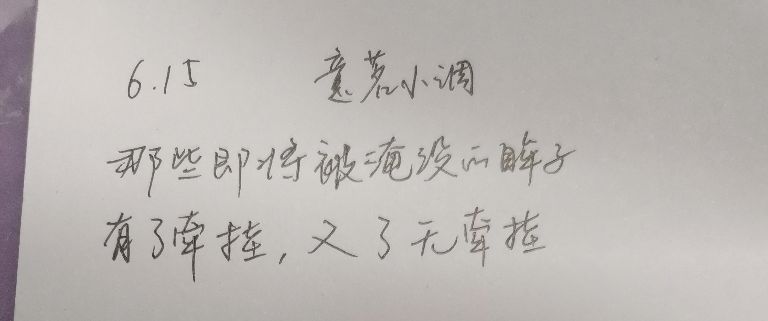 6.15 意茗小调
那些即将被淹没的眸子
有了牵挂,又了无牵挂